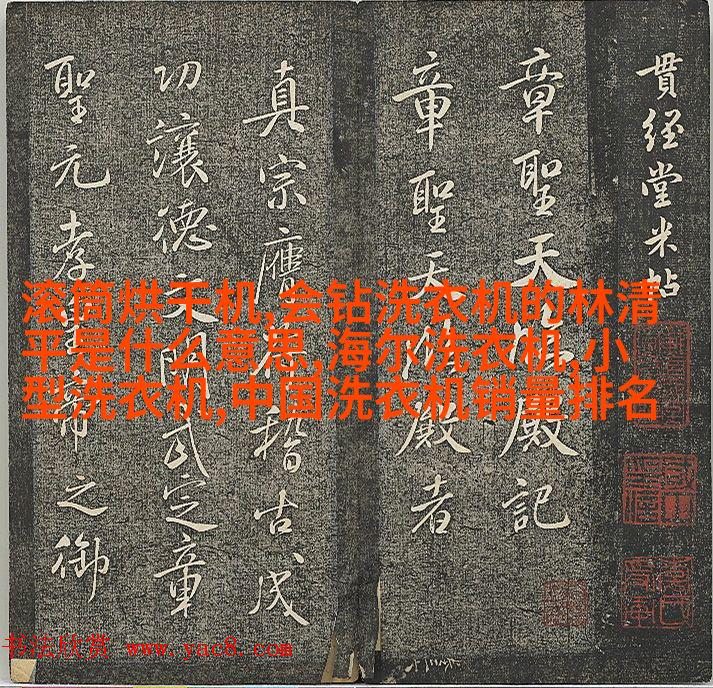 貫経堂米帖
章聖天臨殿記
章聖天臨殿者
真宗膺符稽古成
功讓德文明武定章
聖元孝皇帝之御
滚筒烘干机,会钻洗衣机的林清
平是什么意思,海尔洗衣机,小
型洗衣机,中国洗衣机销量排名
书法欣赏 www.yac8.com